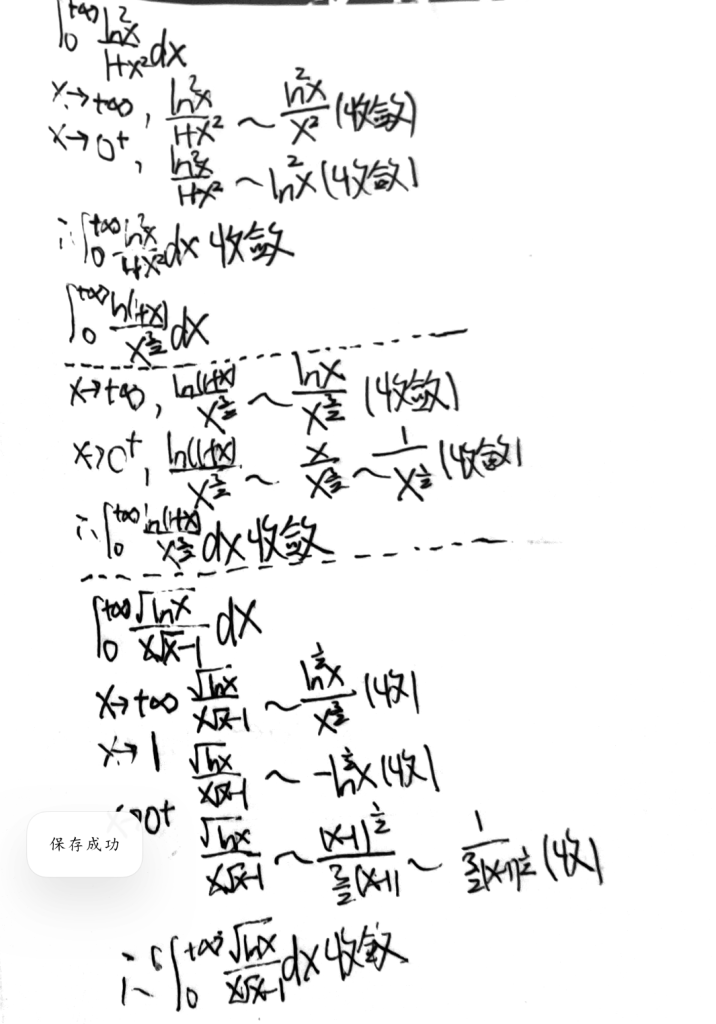 ∫₀^{+∞} ln²x/(1+x²) dx
x→+∞, ln²x/(1+x²) ~ ln²x/x² (收敛)
x→0⁺, ln²x/(1+x²) ~ ln²x (收敛)
∴∫₀^{+∞} ln²x/(1+x²) dx 收敛
∫₀^{+∞} ln(1+x)/x^{3/2} dx
x→+∞, ln(1+x)/x^{3/2} ~ lnx/x^{3/2} (收敛)
x→0⁺, ln(1+x)/x^{3/2} ~ x/x^{3/2} ~ 1/x^{1/2} (收敛)
∴∫₀^{+∞} ln(1+x)/x^{3/2} dx 收敛
∫₀^{+∞} √lnx/(x√x-1) dx
x→+∞ √lnx/(x√x-1) ~ ln^{1/2}x/x^{3/2} (收)
x→1 √lnx/(x√x-1) ~ -ln^{1/2}x (收)
x→0⁺ √lnx/(x√x-1) ~ (x-1)^{1/2}/(3/2(x-1)) ~ 1/(3/2(x-1)^{1/2}) (收)
保存成功
∴∫₀^{+∞} √lnx/(x√x-1) dx 收敛